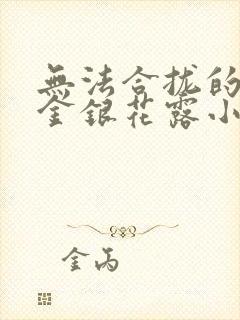 無法合拢的
金銀花露小
金丙